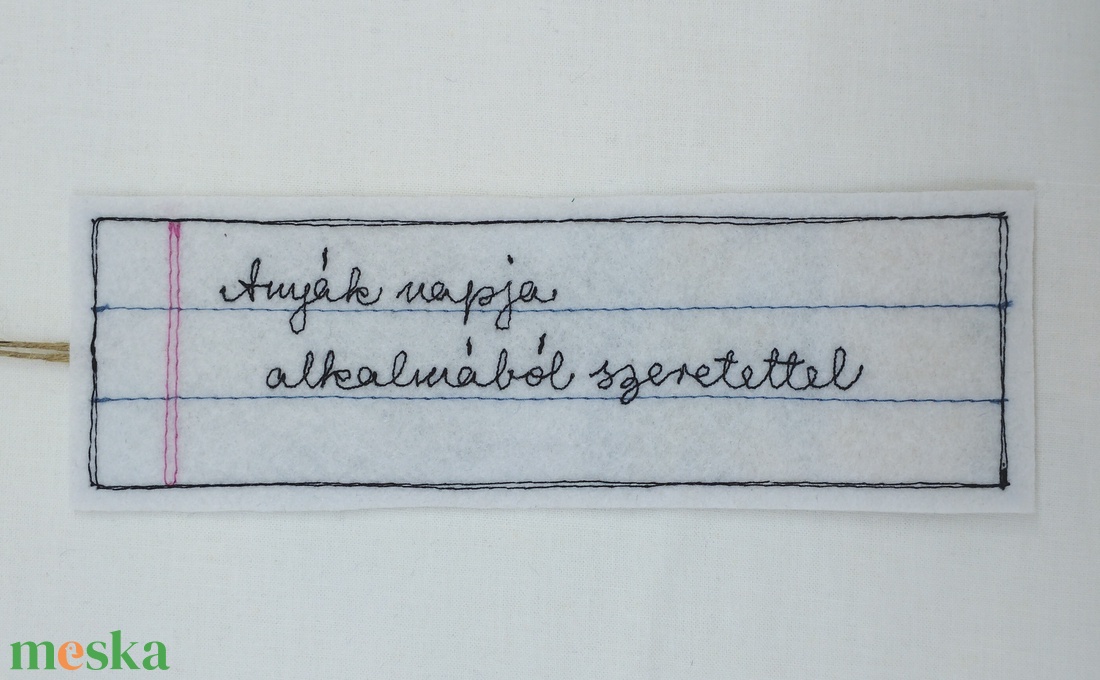 Anyák napja
alkalmából szeretettel
meska